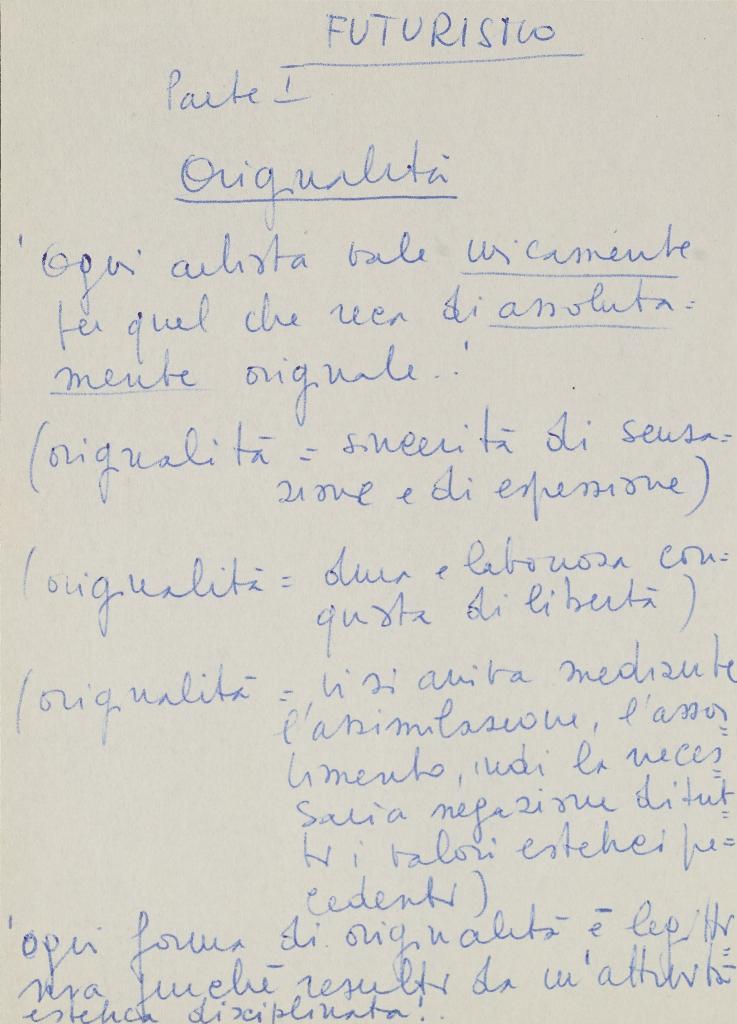 FUTURISMO
Parte I
Originalità
'Ogni artista vale unicamente
per quel che reca di assoluta=
mente originale..'
(originalità = sincerità di sensa=
zione e di espressione)
(originalità = dura e laboriosa con=
quista di libertà)
(originalità = vi si arriva mediante
l'assimilazione, l'assor
bimento, indi la neces=
saria negazione di tut=
ti i valori estetici pre=
cedenti)
'ogni forma di originalità è legitti=
ma purchè resulti da un'attività
estetica disciplinata'..